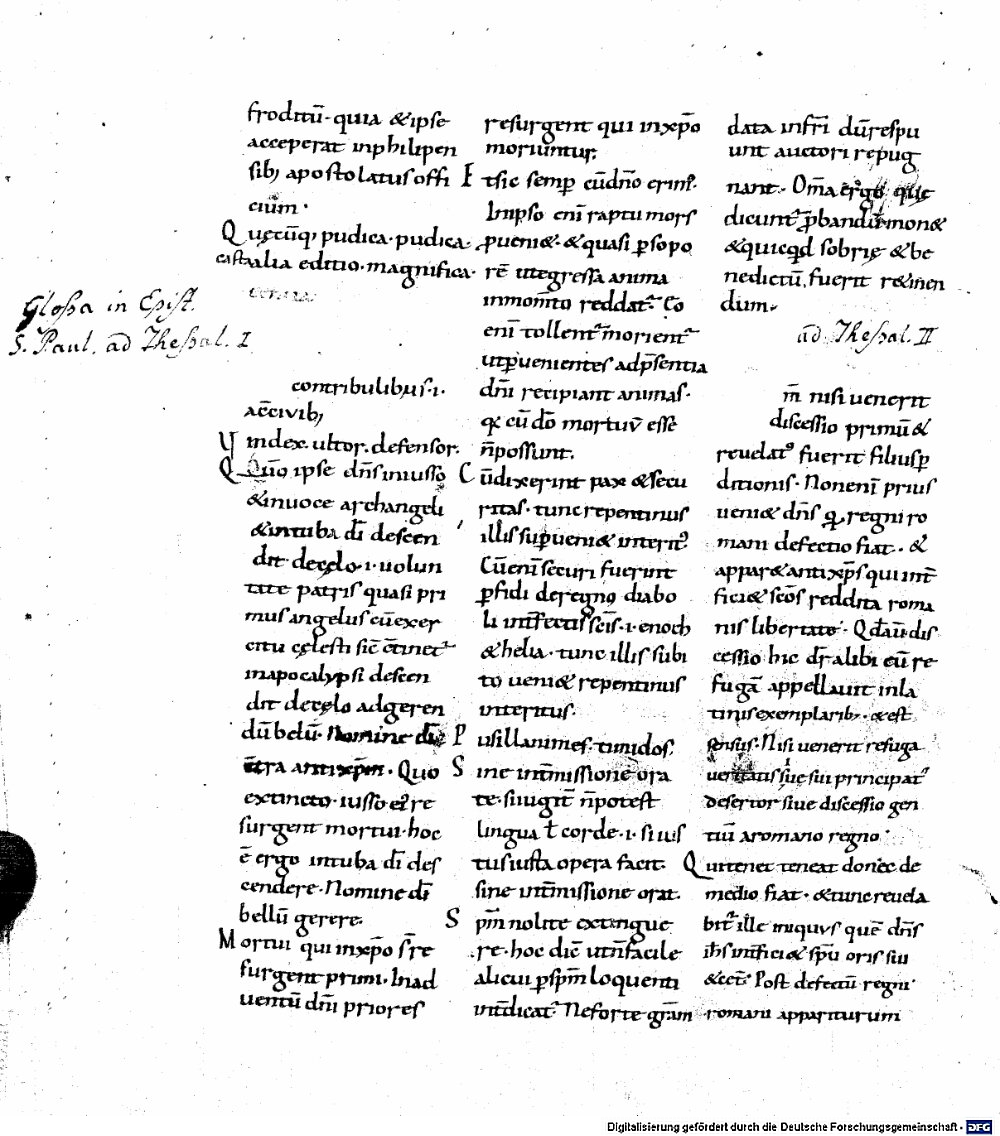 froditū· quia & ipse
acceperat inphilipen
sibꝫ apostolatus offi
cium·
Quęcūqꝫ pudica· pudica·
castaalia editio· magnifica·
Glossa in Epist.
S. Paul. ad Thessal. I
contribulibus·i·
ac̄civibꝫ
Vindex. ultor. defensor.
Quō ipse dn̄s iniusso
& inuoce archangeli
& intuba dī descen
dit decęlo·i·uolun
tate patris quasi pri
mus angelus cū exer
citu cęlesti sic̄ c̄tinet᷒
inapocalypsi descen
dit decęlo adgeren
dū belū· Nomine dī
c̄tra antixp̄m· Quo
extincto·iusso ei᷒ re
surgent mortui· hoc
ē ergo intuba dī des
cendere· Nomine dī
bellū gerere.
Mortui qui inxp̄o s̄ re
surgent primi· Inad
uentū dn̄i priores
resurgent qui inxp̄o
moriuntur.
Et sic semp̄ cūdn̄o erim᷒.
Inipso enī raptu mors
ꝑueni&· & quasi ꝑsopo
rē utegressa anima
inmom̄to reddat᷒· Co
enī tollent᷒ morient᷒
utꝑuenientes adp̄sentia
dn̄i recipiant animas·
qꝛ cū dō mortuv̄ esse
n̄possunt.
Cūdixerint pax & secu
ritas· tunc repentinus
illis suꝑueni& interit᷒.
Cū enī securi fuerint
ꝑfidi deregno diabo
li int̄fectis sc̄is·i·enoch
& helia· tunc illis subi
to ueni& repentinus
interitus·
Pusillanimes. timidos.
Sine int̄missione ora
te· siiugit᷒ n̄potest
lingua ł corde·i·si ius
tus iusta opera facit·
sine int̄missione orat.
Sp̄m nolite extingue
re· hoc dic̄ utn̄facile
alicui ꝑ sp̄m loquenti
int̄dicat᷒· Neforte gr̄am
data infr̄i dū respu
unt auctori repug
nant· Om̄a ergo quę
dicunt᷒ ꝓbanda mon&
& quicqd sobrię & be
nedictū, fuerit r&inen
dum·
ad Thessal. II
m̄ nisi uenerit
discessio primū &
reuelat᷒ fuerit filius ꝑ
ditionis· Non enī prius
ueni& dn̄s qꝛ regni ro
mani defectio fiat·&
appar& antixp̄s qui int̄
fici& sc̄os reddita roma
nis libertate· Qd aū dis
cessio hic dr̄ alibi eū re
fugā appellauit inla
tinis exemplaribꝫ· & est
sensus· Nisi uenerit refuga
ueritatis siue sui principat᷒
desertor siue discessio gen
tiū aromano regno·
Qui tenet teneat donec de
medio fiat· & tunc reuela
bit᷒ ille iniquvs quē dn̄s
ih̄s int̄fici& sp̄u oris sui
& cet̄· Post defectū regni·
romani appariturum
Digitalisierung gefördert durch die Deutsche Forschungsgemeinschaft · DFG